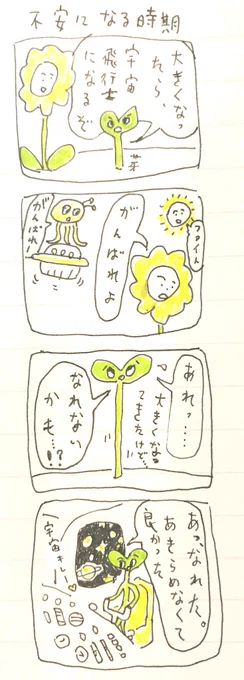 不安になる時期
大きくなっ
たら、
宇宙
飛行士
になるぞ
芽
ファイト
がんばれよ
がんばれ!
あれっ……
大きくな
てきたけど…
なれない
かも…!?
あっ、なれた。
あきらめなくて
良かった
宇宙キバ